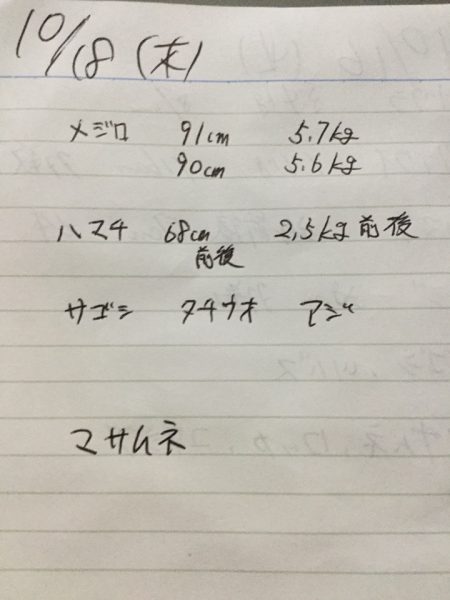 10/18 (木)
メジロ 91cm 5.7kg
90cm 5.6kg
ハマチ 68cm 2.5kg前後
前後
サゴシ タチウオ アジ
マサムネ